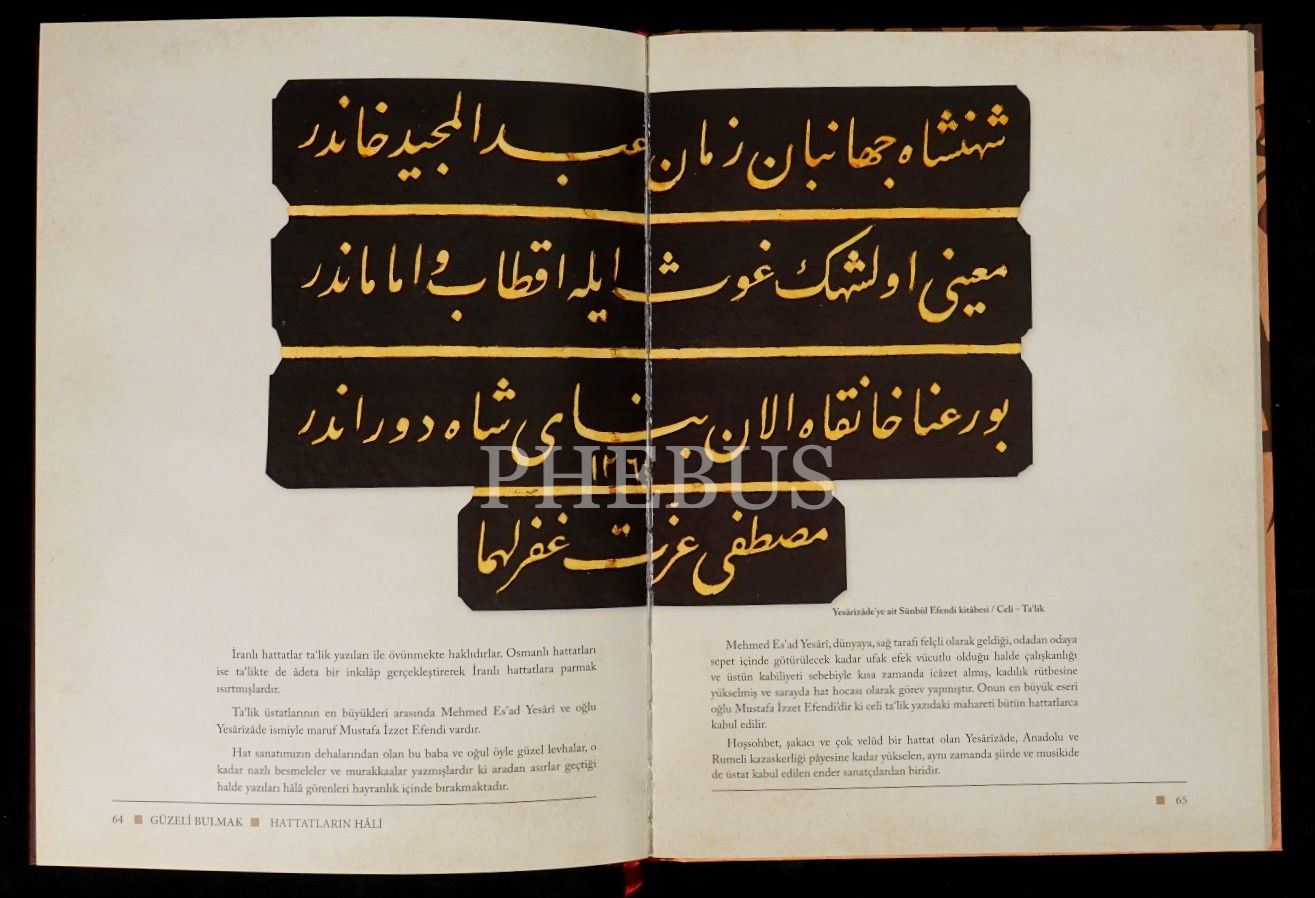 شهنشاه جهانبان زمان عبد المجید خاندر
معینی اولشهك غوث ایله اقطاب و اماماندر
بورعنا خانقاه الان بنای شاه دوراندر
١٢٦
مصطفی عزت غفرلهما
PHEBUS
Yesârîzâde'ye ait Sünbül Efendi kitâbesi / Celi – Ta'lik
İranlı hattatlar ta'lik yazıları ile övünmekte haklıdırlar. Osmanlı hattatları
ise ta'likte de âdeta bir inkılâp gerçekleştirerek İranlı hattatlara parmak
ısırtmışlardır.
Ta'lik üstatlarının en büyükleri arasında Mehmed Es'ad Yesârî ve oğlu
Yesârîzâde ismiyle maruf Mustafa İzzet Efendi vardır.
Hat sanatımızın dehalarından olan bu baba ve oğul öyle güzel levhalar, o
kadar nazlı besmeleler ve murakkaalar yazmışlardır ki aradan asırlar geçtiği
halde yazıları hâlâ görenleri hayranlık içinde bırakmaktadır.
64 ■ GÜZELİ BULMAK ■ HATTATLARIN HÂLİ
Mehmed Es'ad Yesârî, dünyaya, sağ tarafı felçli olarak geldiği, odadan odaya
sepet içinde götürülecek kadar ufak efek vücutlu olduğu halde çalışkanlığı
ve üstün kabiliyeti sebebiyle kısa zamanda icâzet almış, kadılık rütbesine
yükselmiş ve sarayda hat hocası olarak görev yapmıştır. Onun en büyük eseri
oğlu Mustafa İzzet Efendi'dir ki celi ta'lik yazıdaki mahareti bütün hattatlarca
kabul edilir.
Hoşsohbet, şakacı ve çok velûd bir hattat olan Yesârîzâde, Anadolu ve
Rumeli kazaskerliği pâyesine kadar yükselen, aynı zamanda şiirde ve musikide
de üstat kabul edilen ender sanatçılardan biridir.
■ 65